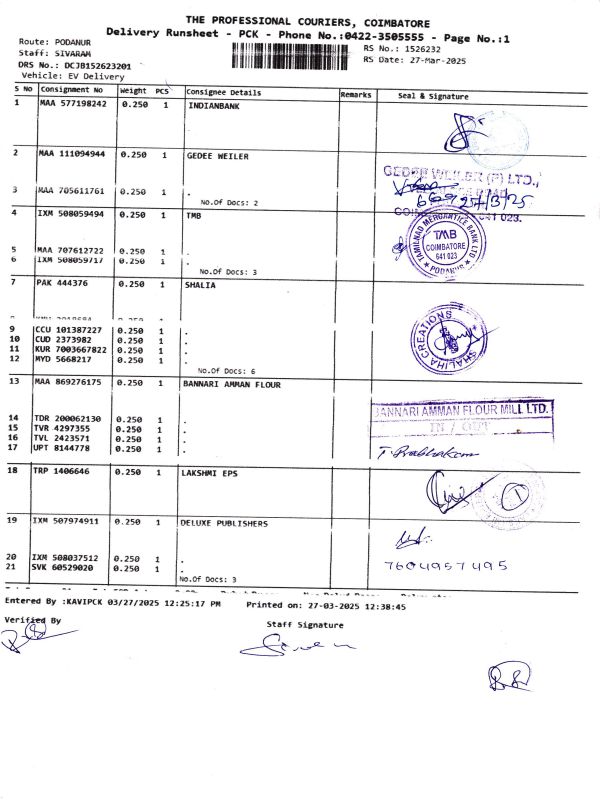 THE PROFESSIONAL COURIERS, COIMBATORE
Delivery Runsheet - PCK - Phone No.:0422-3505555 - Page No.:1
Route: PODANUR
RS No.: 1526232
Staff: SIVARAM
RS Date: 27-Mar-2025
DRS No.: DCJB152623201
Vehicle: EV Delivery
S No Consignment No Weight PCS Consignee Details Remarks Seal & Signature
1 MAA 577198242 0.250 1 INDIANBANK
2 MAA 111094944 0.250 1 GEDEE WEILER
GEDEE WEILER (P) LTD.,
3 MAA 705611761 0.250 1 .
No.Of Docs: 2
27/3/25
641 023.
4 IXM 508059494 0.250 1 TMB
TAMILNAD MERCANTILE BANK LTD
TMB
COIMBATORE
641 023
* PODANUR *
5 MAA 707612722 0.250 1 .
6 IXM 508059717 0.250 1 .
No.Of Docs: 3
7 PAK 444376 0.250 1 SHALIA
SHALIHA CREATIONS
9 CCU 101387227 0.250 1 .
10 CUD 2373982 0.250 1 .
11 KUR 7003667822 0.250 1 .
12 MYD 5668217 0.250 1 .
No.Of Docs: 6
13 MAA 869276175 0.250 1 BANNARI AMMAN FLOUR
BANNARI AMMAN FLOUR MILL LTD.
IN / OUT
14 TDR 200062130 0.250 1 .
15 TVR 4297355 0.250 1 .
16 TVL 2423571 0.250 1 .
17 UPT 8144778 0.250 1 .
T. Prabhakaran
18 TRP 1406646 0.250 1 LAKSHMI EPS
19 IXM 507974911 0.250 1 DELUXE PUBLISHERS
20 IXM 508037512 0.250 1 .
21 SVK 60529020 0.250 1 .
7604957495
No.Of Docs: 3
Entered By :KAVIPCK 03/27/2025 12:25:17 PM Printed on: 27-03-2025 12:38:45
Verified By
Staff Signature